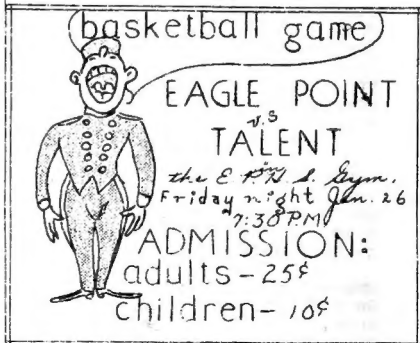 basketball game
EAGLE POINT
v.s
TALENT
in
the E.P.H.S. Gym.
Friday night Jan. 26
7:30 P.M
ADMISSION:
adults - 25¢
children - 10¢